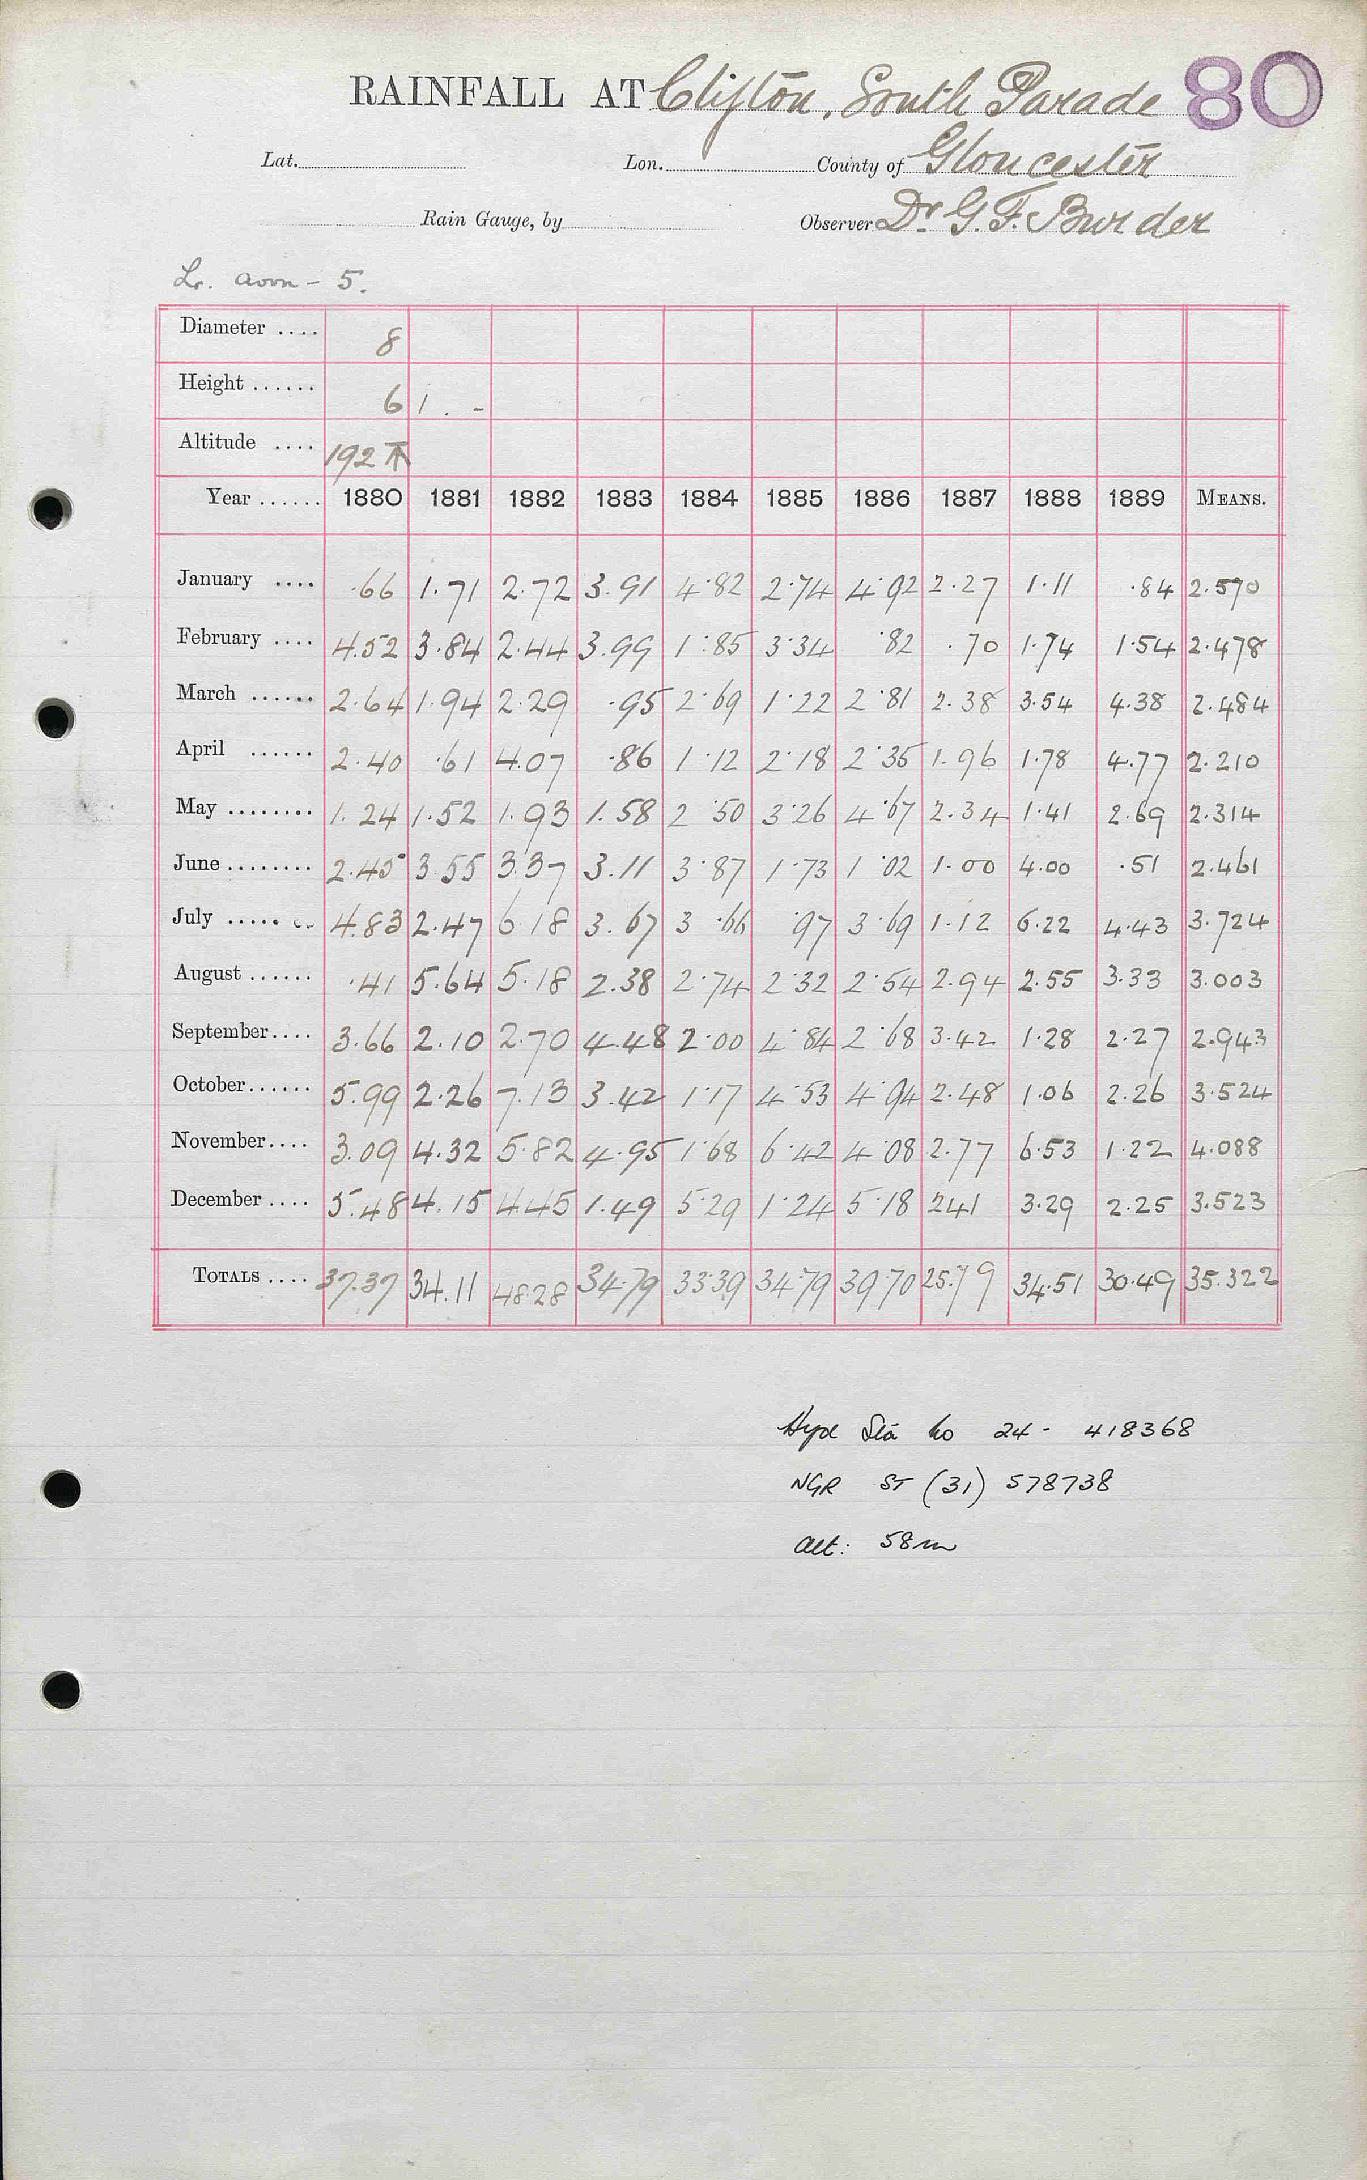 RAINFALL AT Clifton, South Parade 80
Lat. Lon. County of Gloucester
Rain Gauge, by Observer Dr G. F. Burder
Lr. Avon - 5.
Diameter .... 8
Height ...... 6 1 . -
Altitude .... 192
Year ...... 1880 1881 1882 1883 1884 1885 1886 1887 1888 1889 MEANS.
January .... .66 1.71 2.72 3.91 4.82 2.74 4.92 2.27 1.11 .84 2.570
February .... 4.52 3.84 2.44 3.99 1.85 3.34 .82 .70 1.74 1.54 2.478
March ...... 2.64 1.94 2.29 .95 2.69 1.22 2.81 2.38 3.54 4.38 2.484
April ...... 2.40 .61 4.07 .86 1.12 2.18 2.35 1.96 1.78 4.77 2.210
May ........ 1.24 1.52 1.93 1.58 2.50 3.26 4.67 2.34 1.41 2.69 2.314
June ........ 2.45 3.55 3.37 3.11 3.87 1.73 1.02 1.00 4.00 .51 2.461
July ........ 4.83 2.47 6.18 3.67 3.66 .97 3.69 1.12 6.22 4.43 3.724
August ...... .41 5.64 5.18 2.38 2.74 2.32 2.54 2.94 2.55 3.33 3.003
September .... 3.66 2.10 2.70 4.48 2.00 4.84 2.68 3.42 1.28 2.27 2.943
October ...... 5.99 2.26 7.13 3.42 1.17 4.53 4.94 2.48 1.06 2.26 3.524
November .... 3.09 4.32 5.82 4.95 1.68 6.42 4.08 2.77 6.53 1.22 4.088
December .... 5.48 4.15 4.45 1.49 5.29 1.24 5.18 2.41 3.29 2.25 3.523
TOTALS .... 37.37 34.11 48.28 34.79 33.39 34.79 39.70 25.79 34.51 30.49 35.322
Hyd Sta No 24- 418368
NGR ST (31) 578738
Alt: 58m